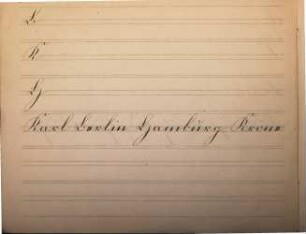 L
K
H
Karl Berlin Hamburg Krone